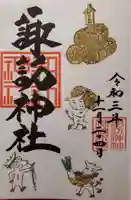 令和三年
十一月二十四日
諏訪神社